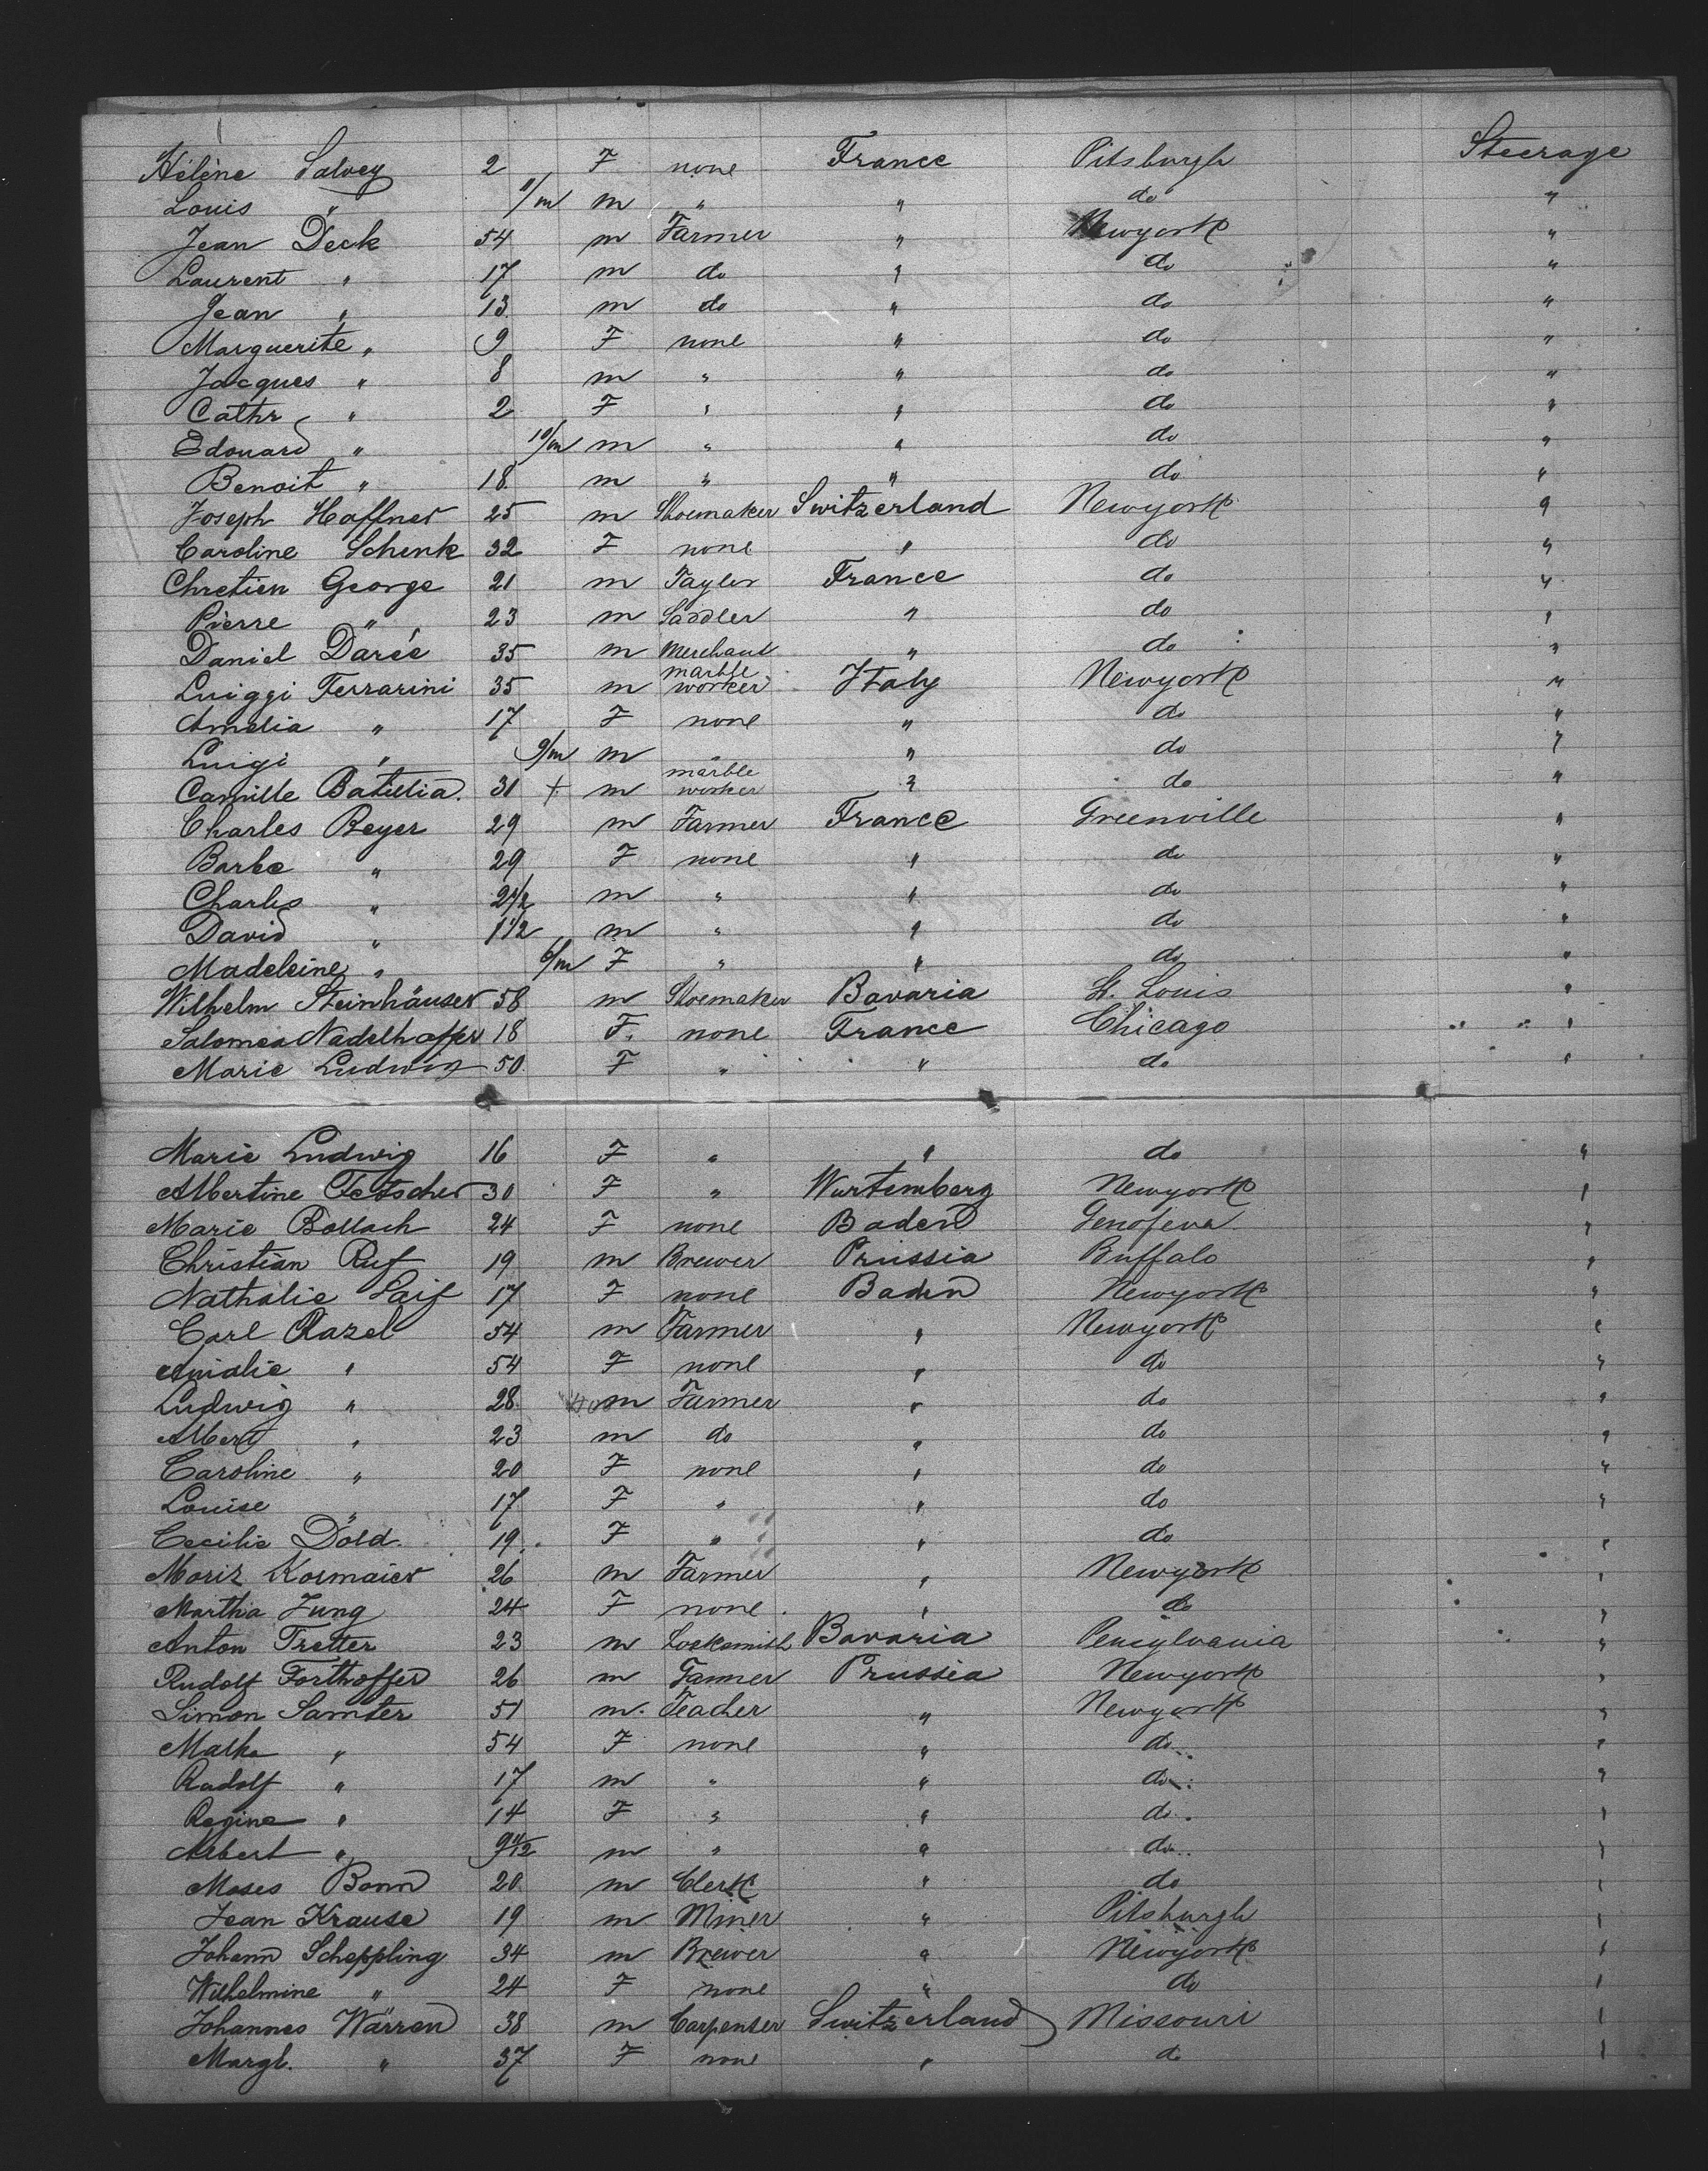 Hélène Salvey 2 F none France Pitsburgh Steerage
Louis " 11/m m " " do "
Jean Deck 54 m Farmer " Newyork "
Laurent " 17 m do " do "
Jean " 13 m do " do "
Marguerite " 9 F none " do "
Jacques " 8 m " " do "
Cathr " 2 F " " do "
Edouard " 10/m m " " do "
Benoit " 18 m " " do "
Joseph Haffner 25 m Shoemaker Switzerland Newyork "
Caroline Schenk 32 F none " do "
Chretien George 21 m Tayler France do "
Pierre " 23 m Sadler " do "
Daniel Darée 35 m Merchant " do "
Luiggi Ferrarini 35 m marble worker Italy Newyork "
Amelia " 17 F none " do "
Luigi " 9/m m " " do "
Camille Batillia. 31 + m marble worker " do "
Charles Beyer 29 m Farmer France Greenville "
Barbe " 29 F none " do "
Charles " 2 1/2 m " " do "
David " 1 1/2 m " " do "
Madeleine " 6/m F " " do "
Wilhelm Steinhäuser 58 m Shoemaker Bavaria St. Louis "
Salomea Nadelhoffer 18 F. none France Chicago "
Marie Ludwig 50 F " " do "
Marie Ludwig 16 F " " do "
Albertine Fetscher 30 F " Wurtemberg Newyork "
Marie Bollach 24 F none Baden Genofeva "
Christian Ruf 19 m Brewer Prussia Buffalo "
Nathalie Laif 17 F none Baden Newyork "
Carl Razel 54 m Farmer " Newyork "
Amalie " 54 F none " do "
Ludwig " 28 m Farmer " do "
Albert " 23 m do " do "
Caroline " 20 F none " do "
Louise " 17 F " " do "
Cecilie Dold. 19 F " " do "
Moriz Kormaier 26 m Farmer " Newyork "
Martha Jung 24 F none " do "
Anton Tretter 23 m Locksmith Bavaria Pencylvania "
Rudolf Forthoffer 26 m Farmer Prussia Newyork "
Simon Samter 51 m. Teacher " Newyork "
Malke " 54 F none " do "
Rudolf " 17 m " " do "
Regine " 14 F " " do "
Albert " 9 11/12 m " " do "
Moses Bonn 20 m Clerk " do "
Jean Krause 19 m Miner " Pitsburgh "
Johann Scheppling 34 m Brewer " Newyork "
Wilhelmine " 24 F none " do "
Johannes Wärren 38 m Carpenter Switzerland Missouri "
Margt. " 37 F none " do "